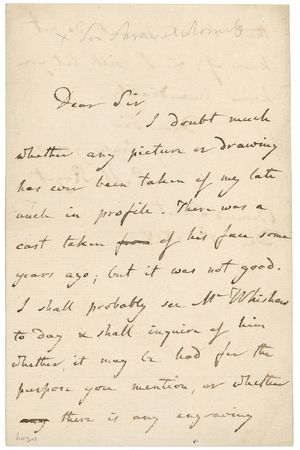 x Sir Samuel Romilly
Dear Sir,
I doubt much
whether any picture or drawing
has ever been taken of my late
uncle in profile. There was a
cast taken from of his face some
years ago; but it was not good.
I shall probably see Mr Whishaw
to day & shall inquire of him
whether, it may be had for the
purpose you mention, or whether
any there is any engraving